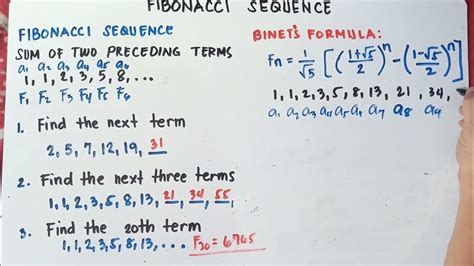 FIBONACCI SEQUENCE
FIBONACCI SEQUENCE
SUM OF TWO PRECEDING TERMS
a₁ a₂ a₃ a₄ a₅ a₆
1, 1, 2, 3, 5, 8, ...
F₁ F₂ F₃ F₄ F₅ F₆
1. Find the next term
2, 5, 7, 12, 19, 31
2. Find the next three terms
1, 1, 2, 3, 5, 8, 13, 21, 34, 55,
3. Find the 20th term
1, 1, 2, 3, 5, 8, 13, ... F₂₀ = 6765
BINET'S FORMULA:
Fn = 1/√5 [((1+√5)/2)ⁿ - ((1-√5)/2)ⁿ]
1, 1, 2, 3, 5, 8, 13, 21, 34,
a₁ a₂ a₃ a₄ a₅ a₆ a₇ a₈ a₉